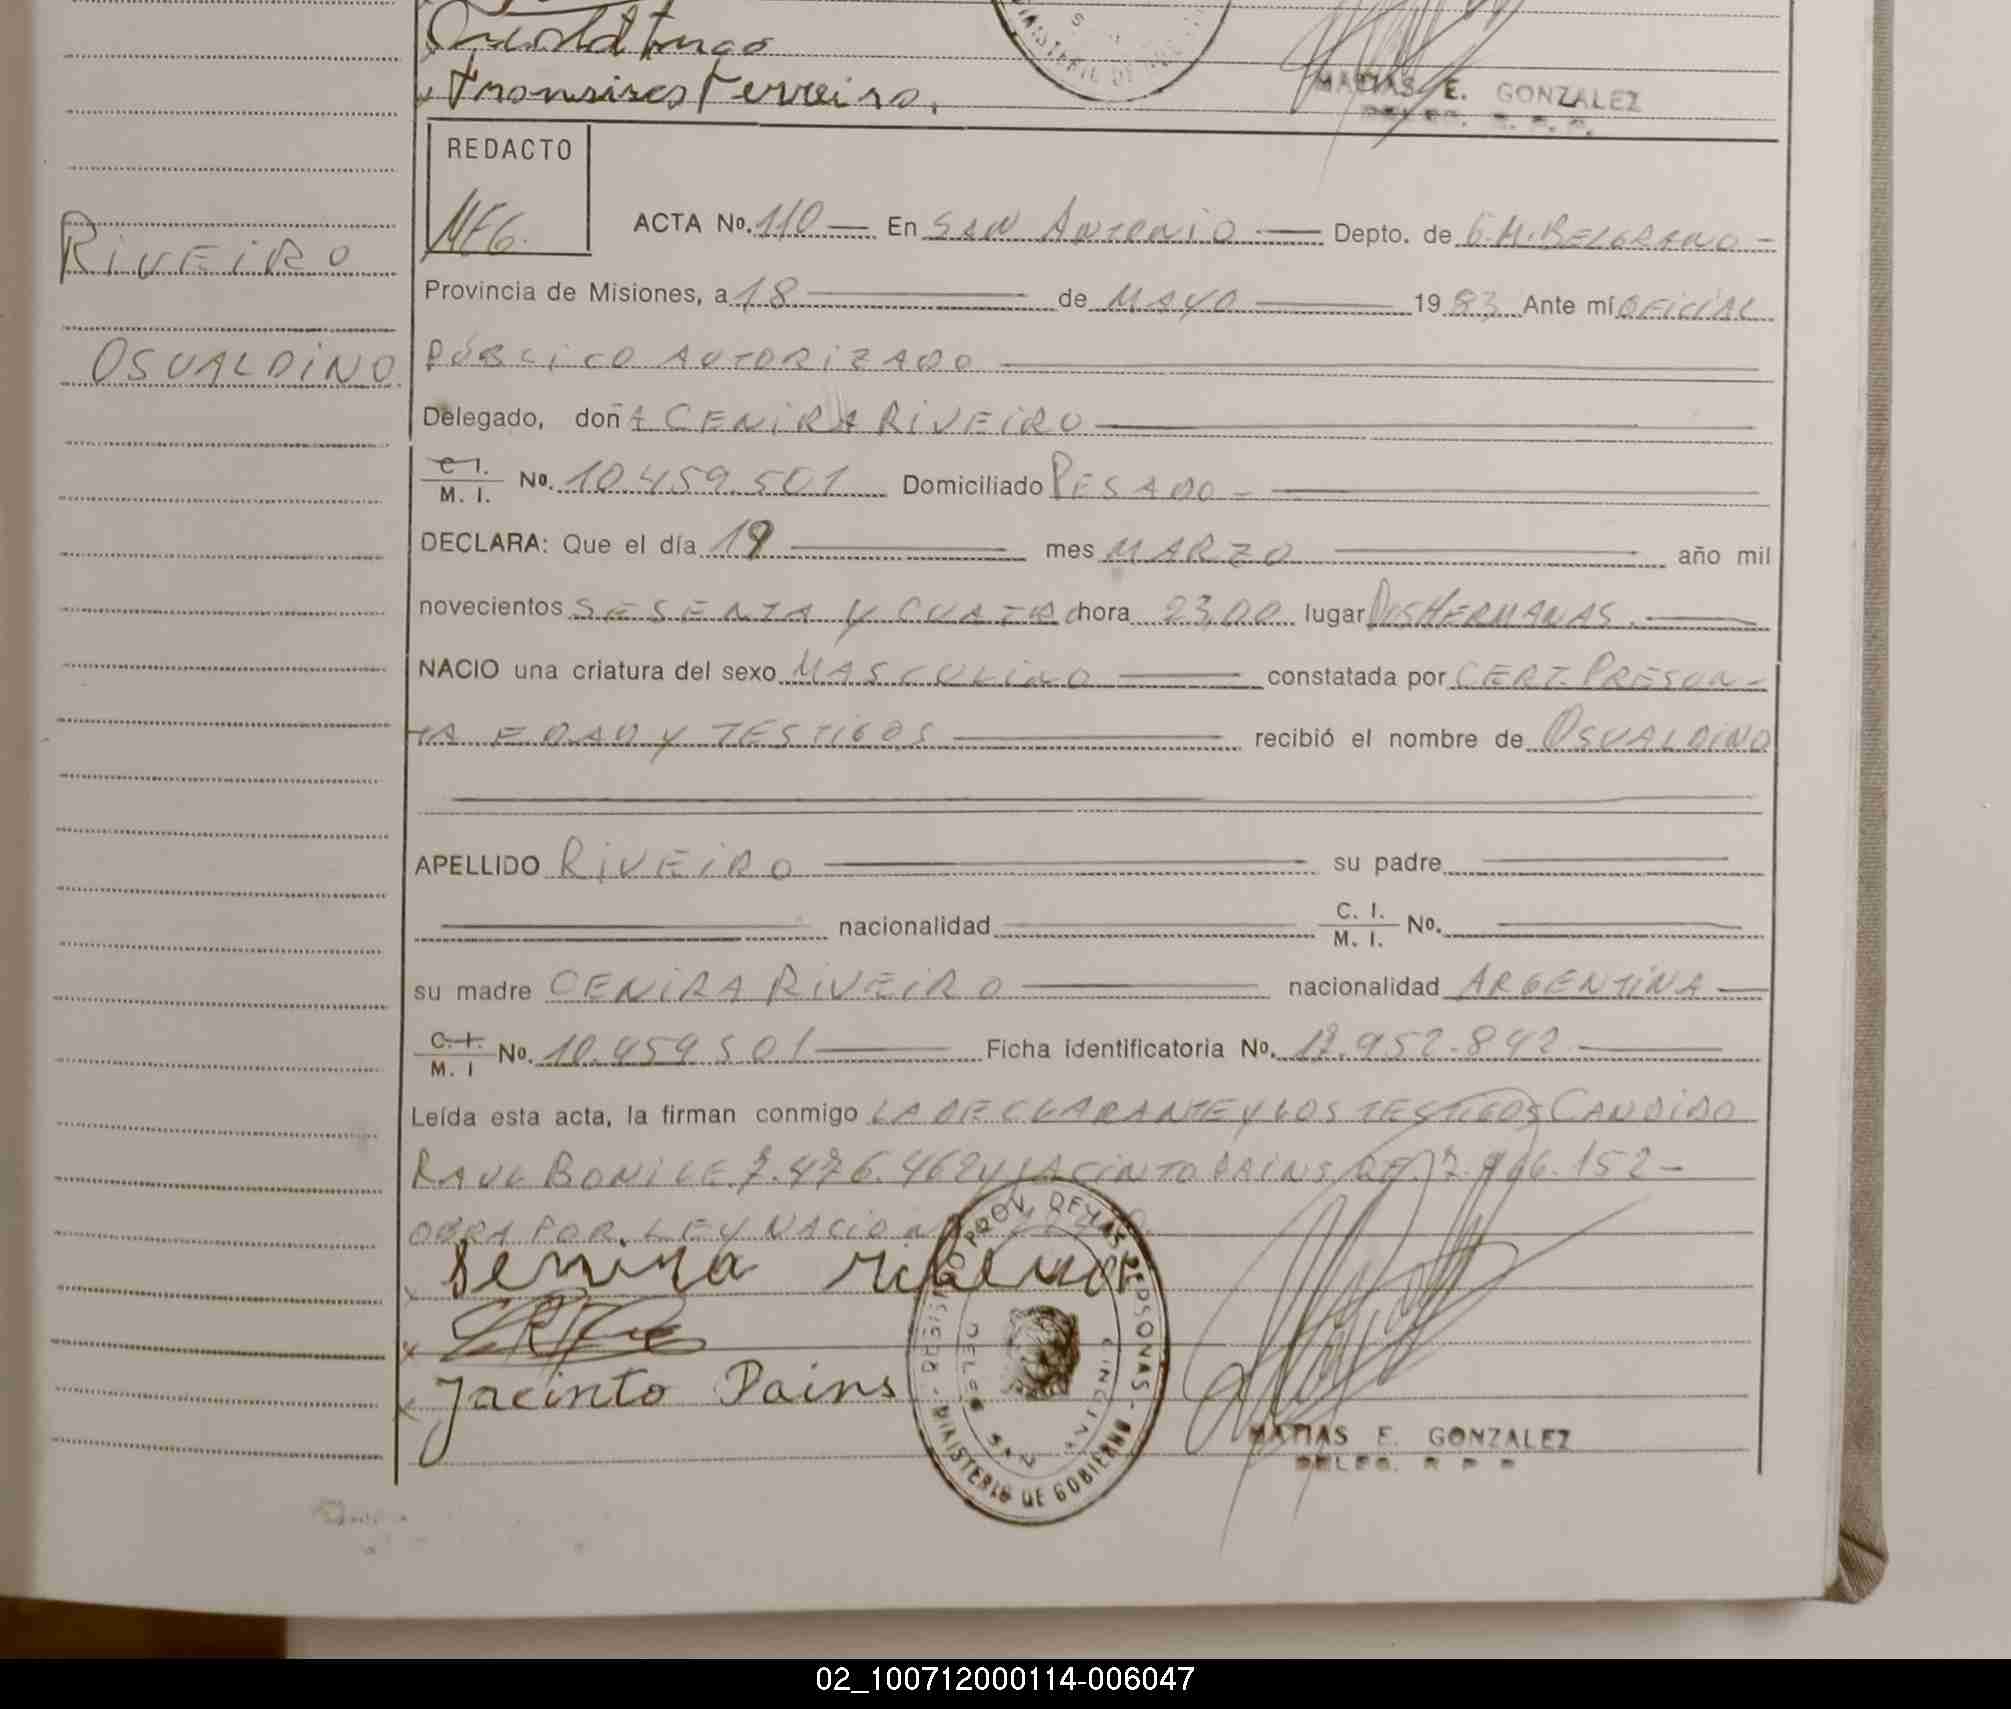 Fronsisco Ferreiro.
MATIAS E. GONZALEZ
REDACTO
MEG.
RIVEIRO
OSVALDINO
ACTA No. 110 — En SAN ANTONIO — Depto. de G.M. BELGRANO -
Provincia de Misiones, a 18 — de MAYO — 1983 Ante mí OFICIAL
PÚBLICO AUTORIZADO —
Delegado, doñA CENIRA RIVEIRO —
C I. / M. I. No. 10.459.501 Domiciliado PESADO - —
DECLARA: Que el día 19 — mes MARZO — año mil
novecientos SESENTA Y CUATRO hora 23,00 lugar DOS HERMANAS. —
NACIO una criatura del sexo MASCULINO — constatada por CERT. PRESUN-
TA EDAD Y TESTIGOS — recibió el nombre de OSVALDINO
APELLIDO RIVEIRO — su padre —
— nacionalidad — C. I. / M. I. No. —
su madre CENIRA RIVEIRO — nacionalidad ARGENTINA —
C. I. / M. I No. 10.459.501 — Ficha identificatoria No. 17.952.842 —
Leída esta acta, la firman conmigo LA DECLARANTE Y LOS TESTIGOS CANDIDO
RAUL BONI LE. 7.476.462 y JACINTO PAINS DE. 17.966.152 -
OBRA POR LEY NACIONAL
Senira ribeiro
Jacinto Pains
PROV. DE LAS PERSONAS - MINISTERIO DE GOBIERNO
MATIAS E. GONZALEZ
DELEG. R P P
02_100712000114-006047